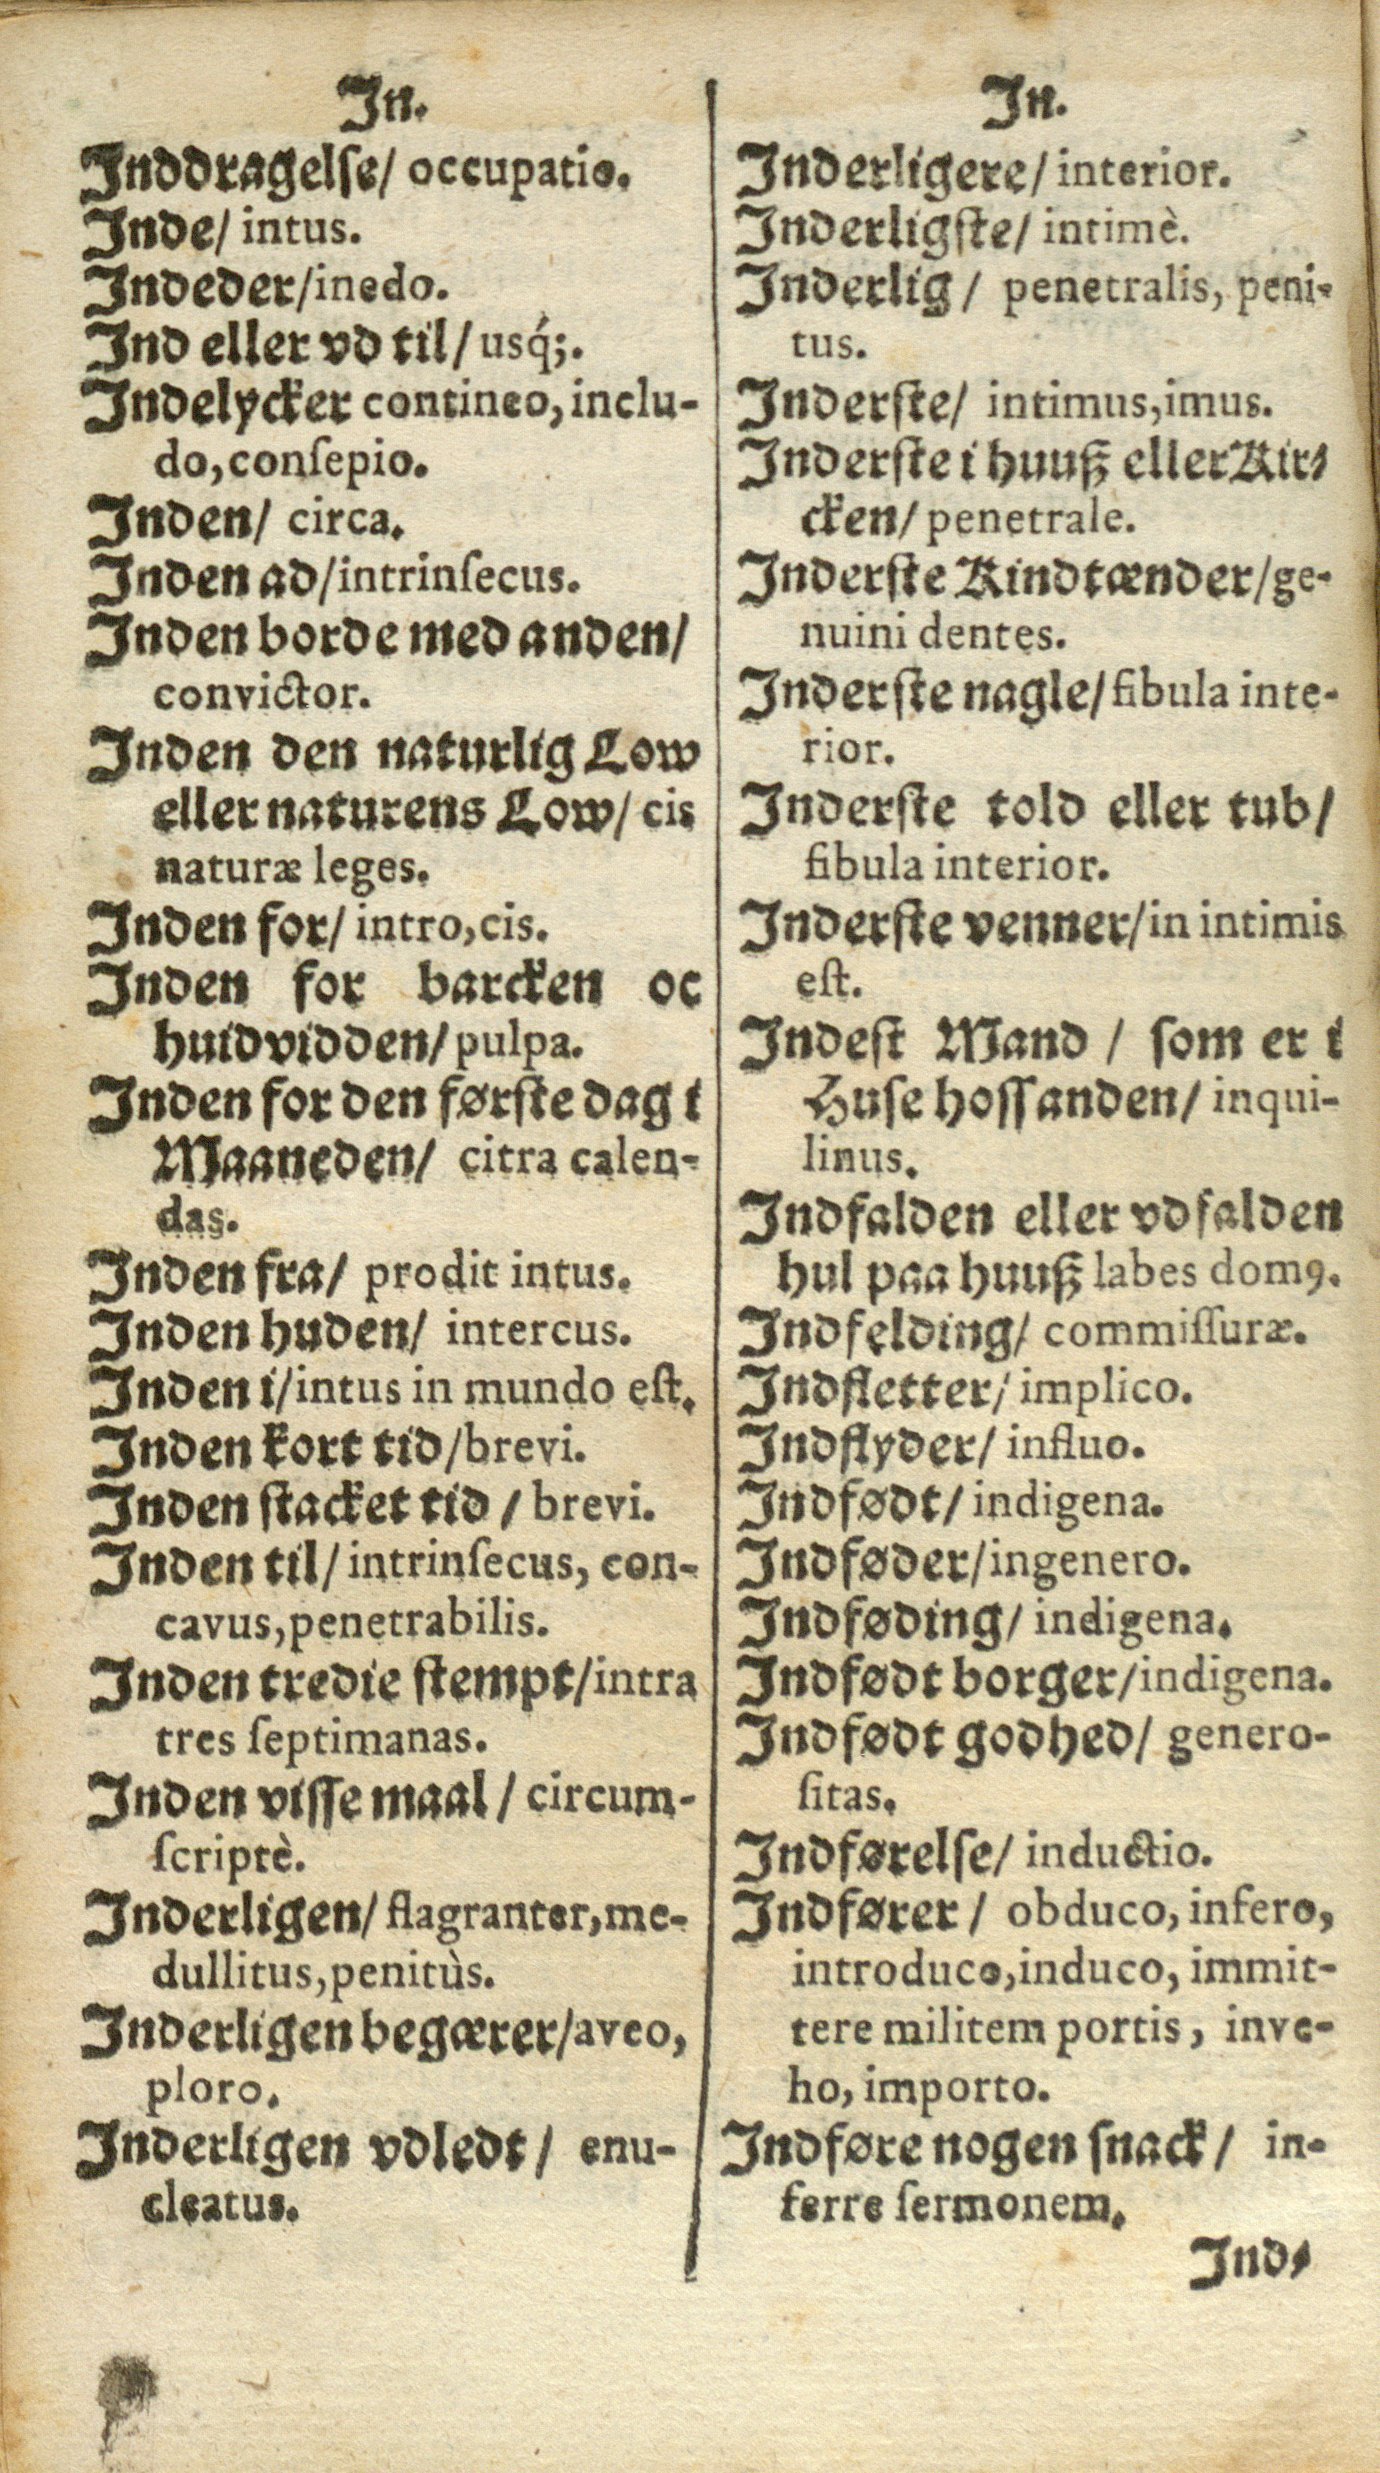 In.
Inddragelse/ occupatio.
Inde/ intus.
Indeder/inedo.
Ind eller vd til/ usq́;.
Indelycker contineo, inclu-
do, conſepio.
Inden/ circa.
Inden ad/intrinſecus.
Inden borde med anden/
convictor.
Inden den naturlig Low
eller naturens Low/ cis
naturæ leges.
Inden for/ intro, cis.
Inden for barcken oc
huidvidden/ pulpa.
Inden for den førſte dag i
Maaneden/ citra calen-
das.
Inden fra/ prodit intus.
Inden huden/ intercus.
Inden i/intus in mundo eſt.
Inden kort tid/brevi.
Inden ſtacket tid / brevi.
Inden til/ intrinſecus, con-
cavus, penetrabilis.
Inden tredie ſtempt/intra
tres ſeptimanas.
Inden viſſe maal / circum-
ſcriptè.
Inderligen/ flagranter, me-
dullitus, penitùs.
Inderligen begærer/aveo,
ploro.
Inderligen vdledt / enu-
cleatus.
In.
Inderligere/ interior.
Inderligſte/ intimè.
Inderlig / penetralis, peni-
tus.
Inderſte/ intimus, imus.
Inderſte i huuß eller Kir-
cken/ penetrale.
Inderſte Kindtænder/ge-
nuini dentes.
Inderſte nagle/ fibula inte-
rior.
Inderſte told eller tub/
fibula interior.
Inderſte venner/in intimis
eſt.
Indeſt Mand / ſom er i
Huſe hoſſ anden/ inqui-
linus.
Indfalden eller vdfalden
hul paa huuß labes domꝰ.
Indfelding/ commiſſuræ.
Indfletter/ implico.
Indflyder/ influo.
Indfødt/ indigena.
Indføder/ingenero.
Indføding/ indigena.
Indfødt borger/indigena.
Indfødt godhed/ genero-
ſitas.
Indførelſe/ inductio.
Indfører / obduco, infero,
introduco, induco, immit-
tere militem portis, inve-
ho, importo.
Indføre nogen ſnack / in-
ferre ſermonem.
Ind-